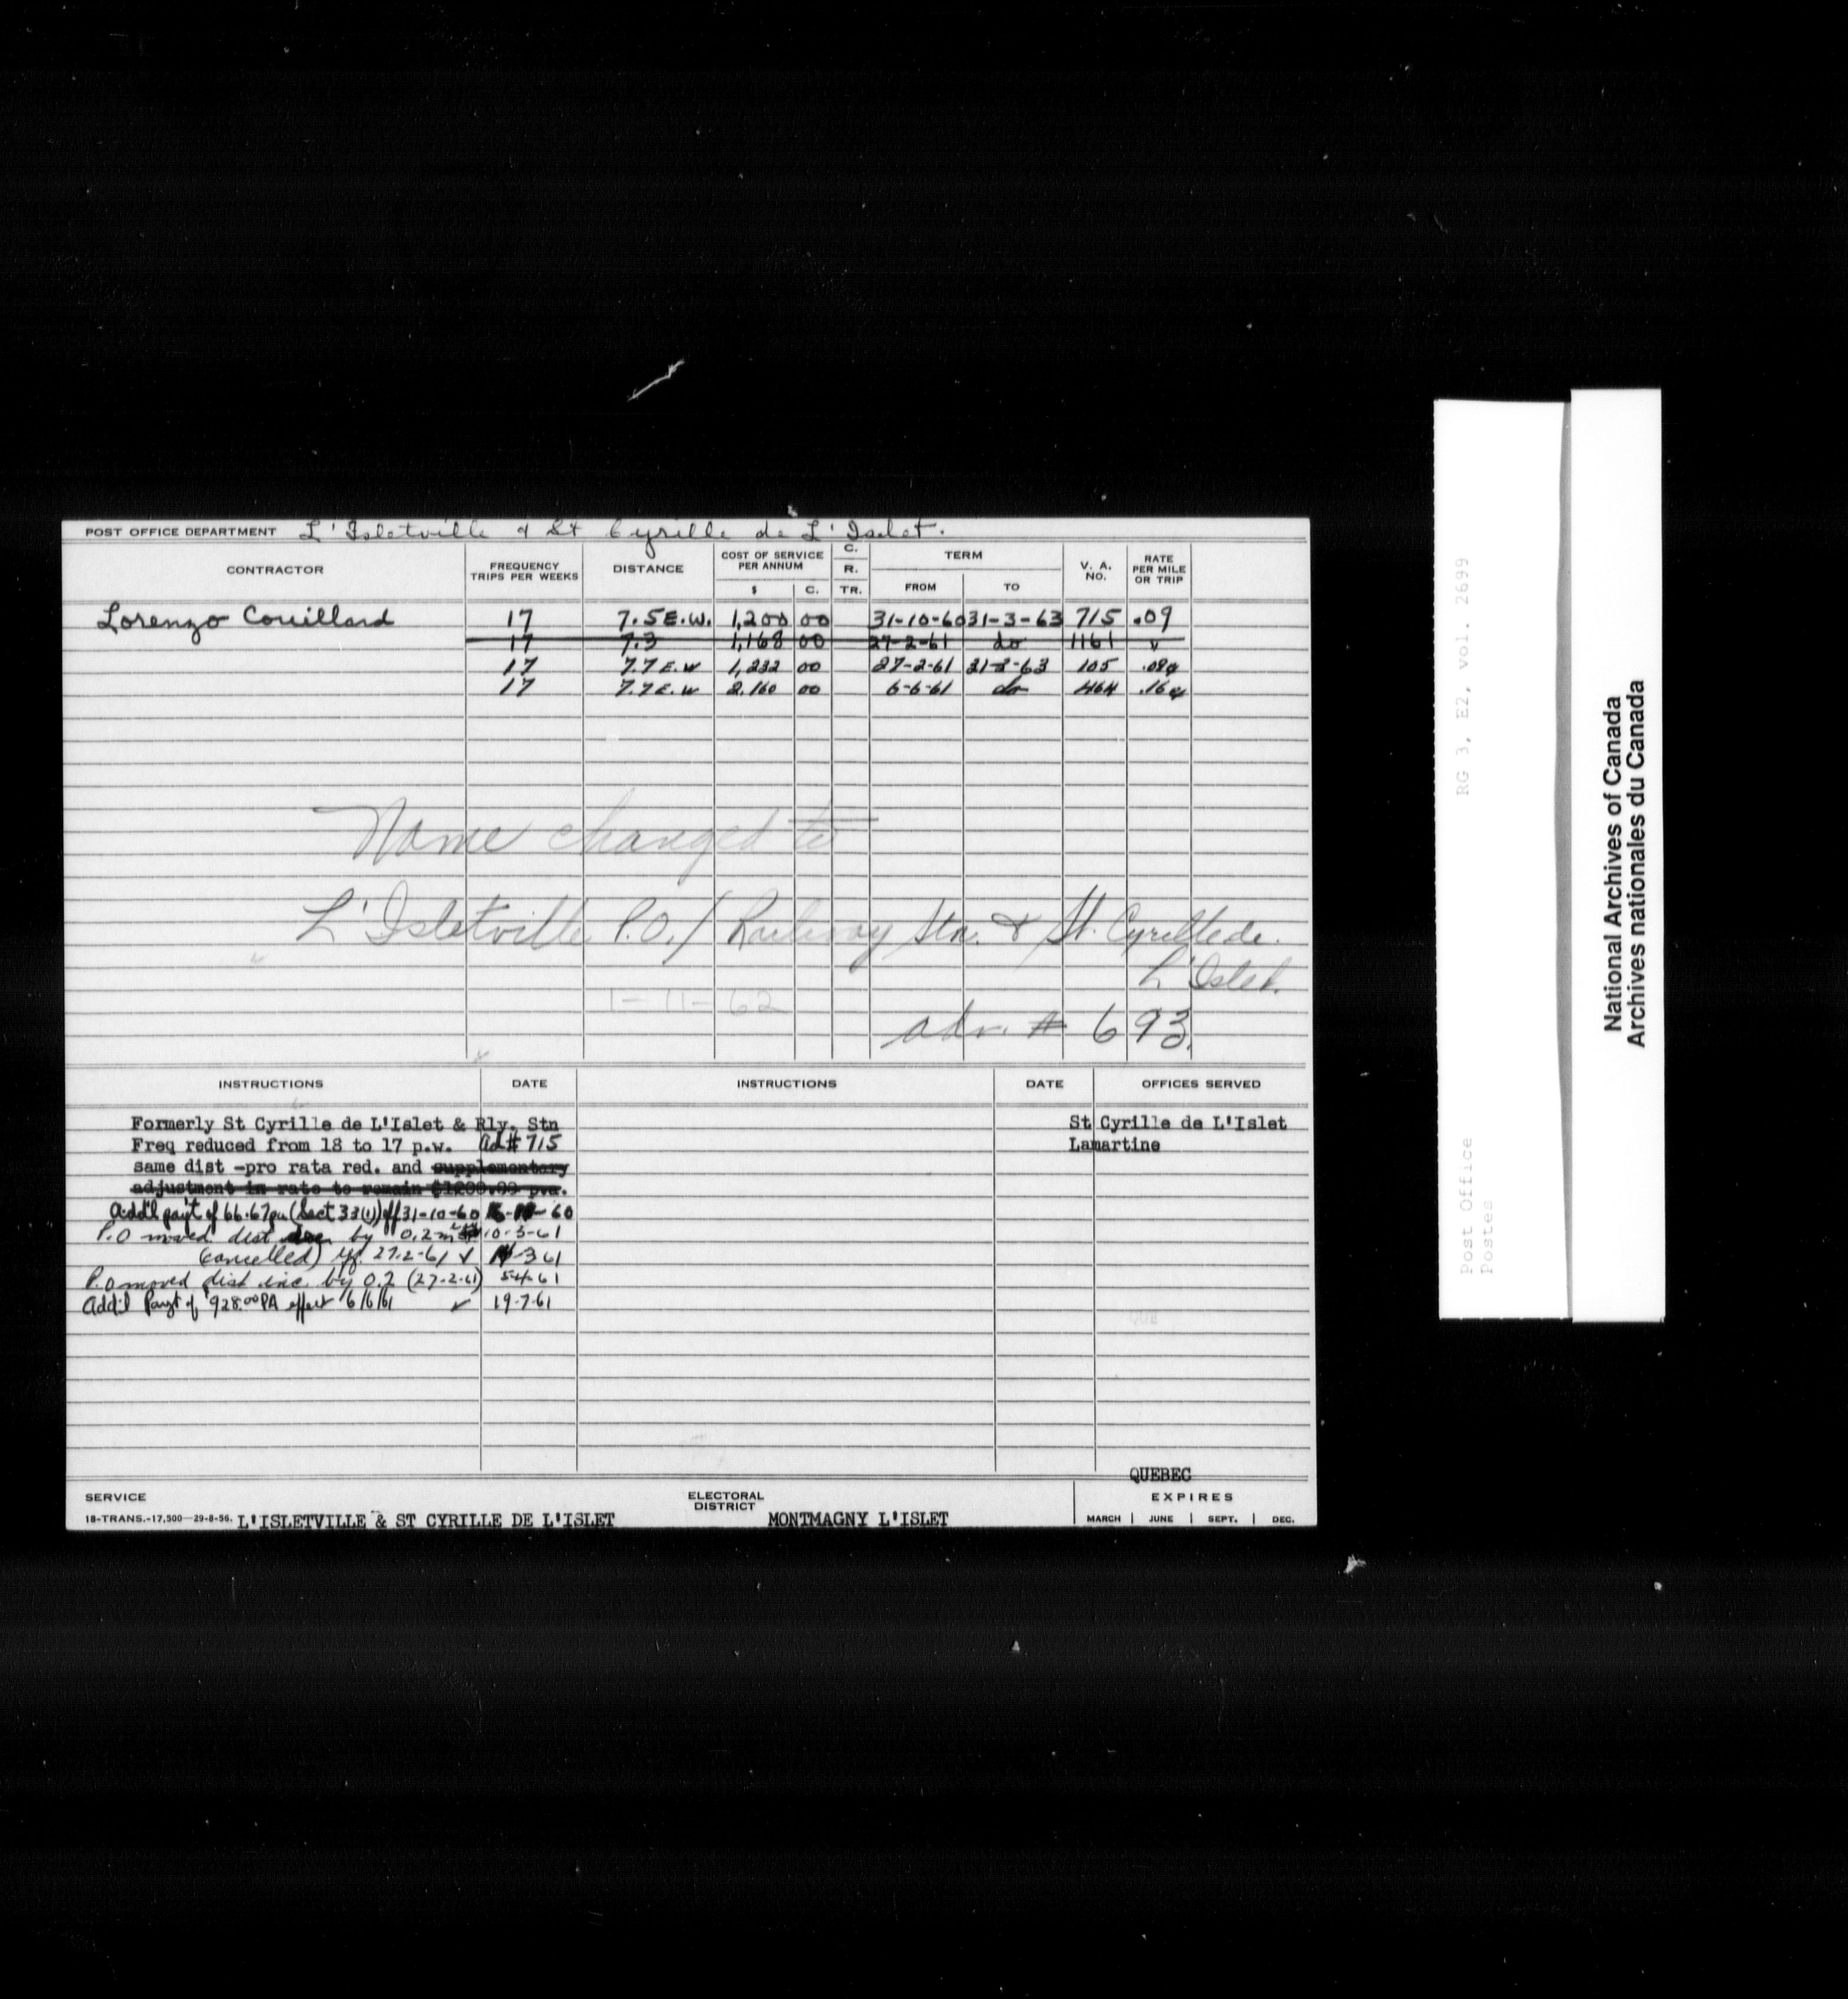 POST OFFICE DEPARTMENT L'Isletville & St Cyrille de L'Islet.
CONTRACTOR FREQUENCY TRIPS PER WEEKS DISTANCE COST OF SERVICE PER ANNUM $ C. C. R. TR. TERM FROM TO V. A. NO. RATE PER MILE OR TRIP
Lorenzo Couillard 17 7.5 E.W. 1,200 00 31-10-60 31-3-63 715 .09
17 7.3 1,168 00 27-2-61 do 1161 v
17 7.7 E.W 1,232 00 27-2-61 31-3-63 105 .09
17 7.7 E.W 2,160 00 6-6-61 do 464 .16
Name changed to
L'Isletville P.O./ Railway Stn. & St. Cyrille de
L'Islet.
1-11-62
adv. # 693.
INSTRUCTIONS DATE INSTRUCTIONS DATE OFFICES SERVED
Formerly St Cyrille de L'Islet & Rly. Stn St Cyrille de L'Islet
Freq reduced from 18 to 17 p.w. ad# 715 Lamartine
same dist -pro rata red. and supplementary
adjustment in rate to remain $1200.00 p.a.
Add'l pay't of 66.67 pa (Sect 33(1)) eff 31-10-60 60
P.O moved dist by 0.2 m 10-3-61
(cancelled) eff. 27-2-61 ✓ 3 61
P.O moved dist inc. by 0.2 (27-2-61) 5-4-61
Add'l Payt of $928.00 PA effect 6/6/61 ✓ 19-7-61
QUE
QUEBEC
SERVICE ELECTORAL DISTRICT EXPIRES
18-TRANS.-17,500—29-8-56. L'ISLETVILLE & ST CYRILLE DE L'ISLET MONTMAGNY L'ISLET MARCH | JUNE | SEPT. | DEC.
RG 3, E2, vol. 2699
Post Office
Postes
National Archives of Canada
Archives nationales du Canada